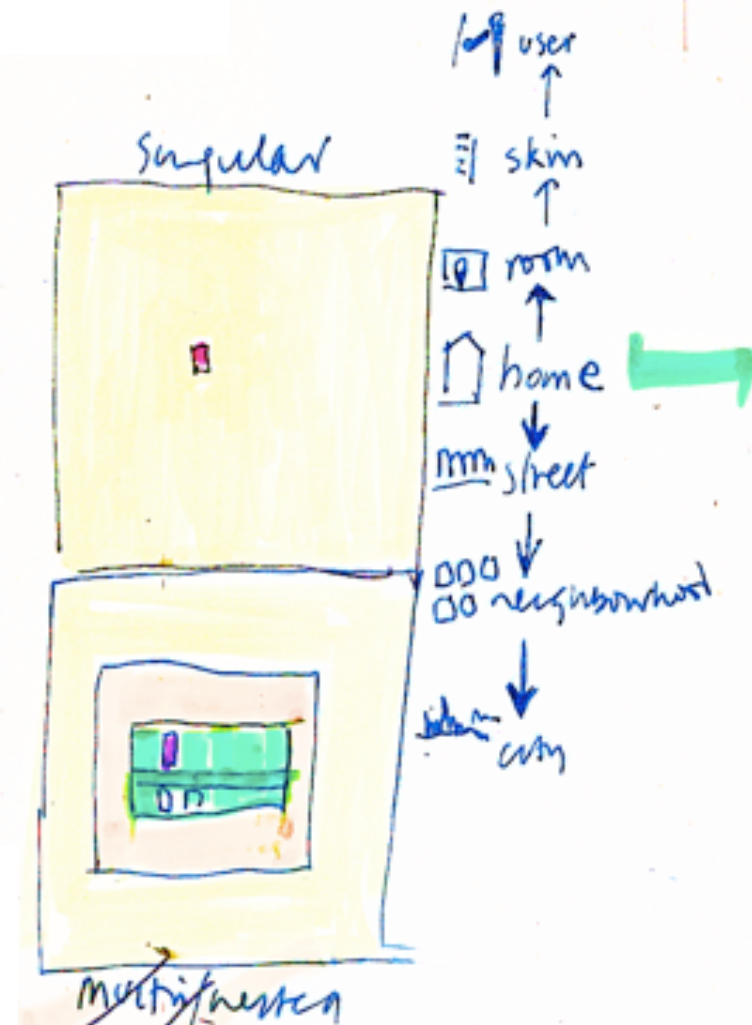 user
Singular
skin
room
home
street
neighbourhood
city
multi/nested